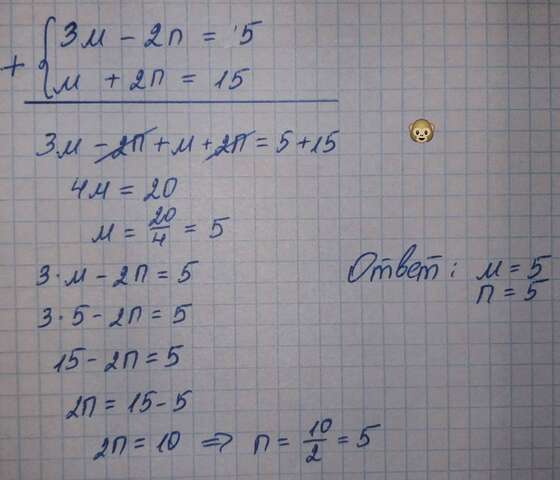 + { 3м - 2п = 5
м + 2п = 15
3м - 2п + м + 2п = 5 + 15
4м = 20
м = 20/4 = 5
3·м - 2п = 5
3·5 - 2п = 5
15 - 2п = 5
2п = 15 - 5
2п = 10 => п = 10/2 = 5
Ответ: м = 5
п = 5